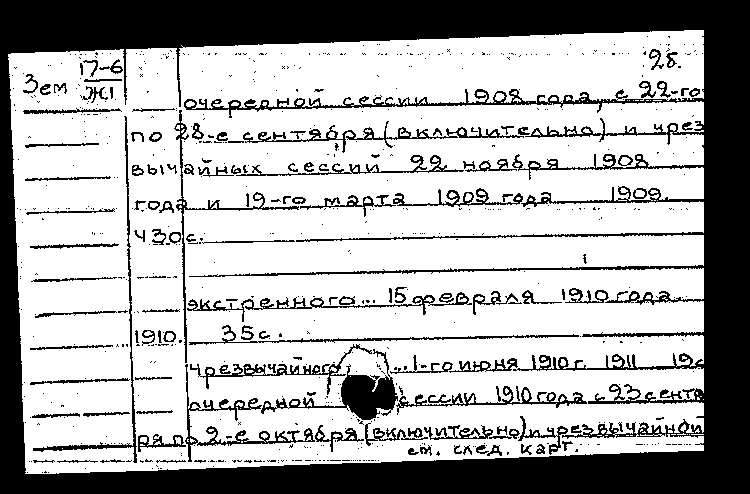 28.
Зем 17-6
Ж1
очередной сессии 1908 года, с 22-го
по 28-е сентября (включительно) и чрез
вычайных сессий 22 ноября 1908
года и 19-го марта 1909 года 1909.
430с.
экстренного... 15 февраля 1910 года.
1910. 35с.
Чрезвычайного ... 1-го июня 1910 г. 1911
очередной сессии 1910 года с 23 сентя
ря по 2-е октября (включительно) и чрезвычайной
см. след. карт.